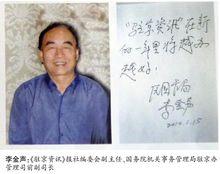 “驻京资讯”在新
的一年里将越办
越好。
李金声
2010.1.15
李金声:《驻京资讯》报社编委会副主任、国务院机关事务管理局驻京办
管理司前副司长